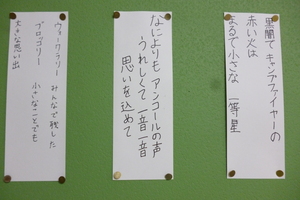 黒闇で キャンプファイヤーの
赤い火は
まるで小さな 一等星
なによりも アンコールの声
うれしくて 一音一音
思いを込めて
みんなで残した
ブロッコリー 小さなことでも
大きな思い出